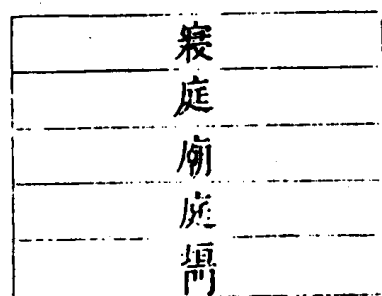 寢
庭
廟
庭